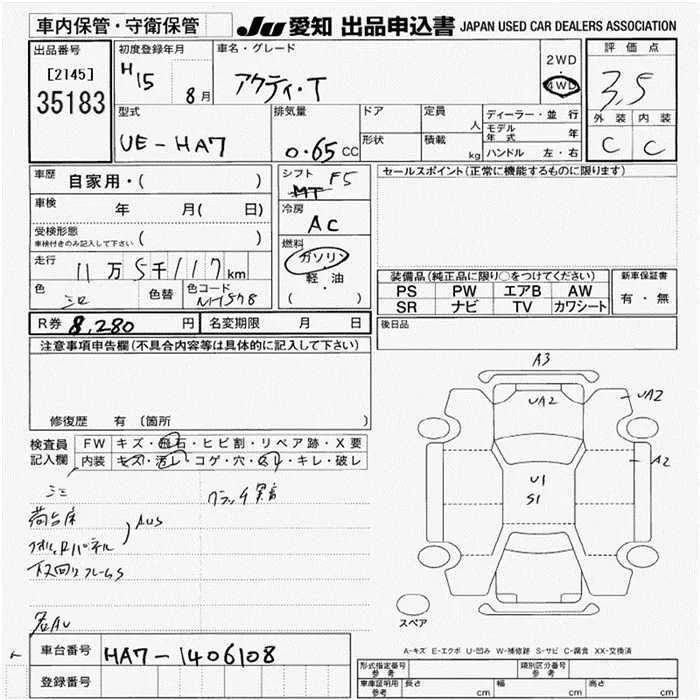 車内保管・守衛保管 JU 愛知 出品申込書 JAPAN USED CAR DEALERS ASSOCIATION
出品番号 初度登録年月 車名・グレード 2WD 評価点
[2145] H15 8月 アクティ・T 4WD 3.5
35183
型式 排気量 ドア 定員 人 ディーラー・並行 外装 内装
UE-HA7 0.65CC 形状 積載 kg モデル年式 年 C C
ハンドル 左・右
車歴 自家用・( ) シフト MT F5 セールスポイント(正常に機能するものに限ります)
車検 年 月( 日) 冷房 AC
受検形態 車検付きのみ記入して下さい ( )
燃料 ガソリン
走行 11万5千117km 軽・油
( )
装備品(純正品に限り○をつけてください) 新車保証書
色 シロ 色替 色コード NH578
PS PW エアB AW 有・無
SR ナビ TV カワシート
R券 8,280円 名変期限 月 日 後日品
注意事項申告欄(不具合内容等は具体的に記入して下さい)
修復歴 有(箇所 )
検査員記入欄 FW キズ・飛石・ヒビ割・リペア跡・X要
内装 キズ・汚レ・コゲ・穴・スレ・キレ・破レ
クラッチ異音
荷台床 AUS
下回りフレームS
各AU
A3
UA2
UA2
A2
U1
S1
スペア
A-キズ E-エクボ U-凹み W-補修跡 S-サビ C-腐食 XX-交換済
車台番号 HA7-1406108
登録番号
型式指定番号 参考 類別区分番号 参考
車庫証明用 参考 長さ cm 幅 cm 高さ cm